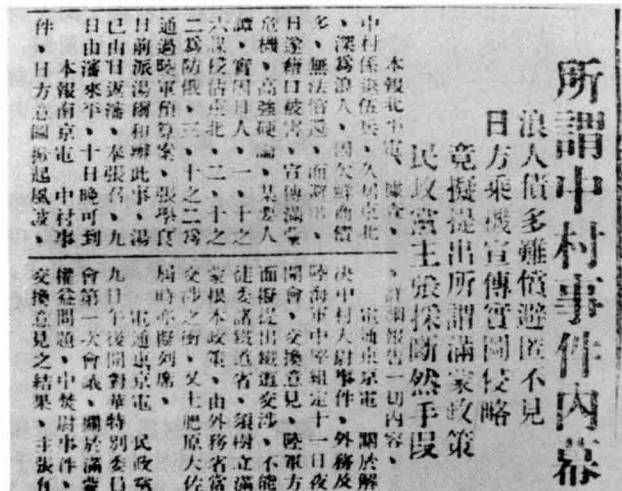 所謂中村事件內幕
浪人債多難償避匿不見
日方乘機宣傳實圖侵略
竟擬提出所謂滿蒙政策
民政黨主張採斷然手段
本報北平電、據查、
中村係退伍兵、久居東北
、深爲浪人、因欠鮮商債
多、無法償還、而避匿、
日遂藉口被害、宣傳滿蒙
危機、高強硬論、某要人
譚、實因日人、一、十之
六謀侵佔東北、二、十之
二爲防俄、三、十之二爲
通過陸軍預算案、張學良
日前派湯爾和辦此事、湯
已由日返瀋、奉張召、九
日由瀋來平、十日晚可到
本報南京電 中村事
件、日方意圖掀起風波、
、詳細報告一切內容、
電通東京電 關於解
決中村大尉事件、外務及
陸海軍中堅組定十一日夜
開會、交換意見、陸軍方
面擬提出鐵道交涉、不能
徒委諸鐵道省、須樹立滿
蒙根本政策、由外務省當
交涉之衝、又土肥原大佐
屆時亦擬列席、
電通東京電 民政黨
九日午後開對華特別委員
會第一次會議、關於滿蒙
權益問題、中村大尉事件、
交換意見之結果、主張有